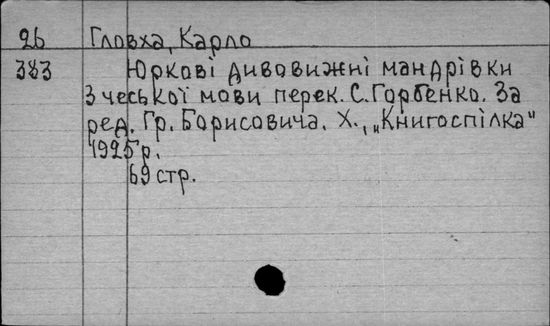 26 Гловха, Карло
383 Юркові дивовижні мандрівки
З чеської мови перек. С. Горбенко. За
ред. Гр. Борисовича. Х., „Книгоспілка"
1925 р.
69 стр.